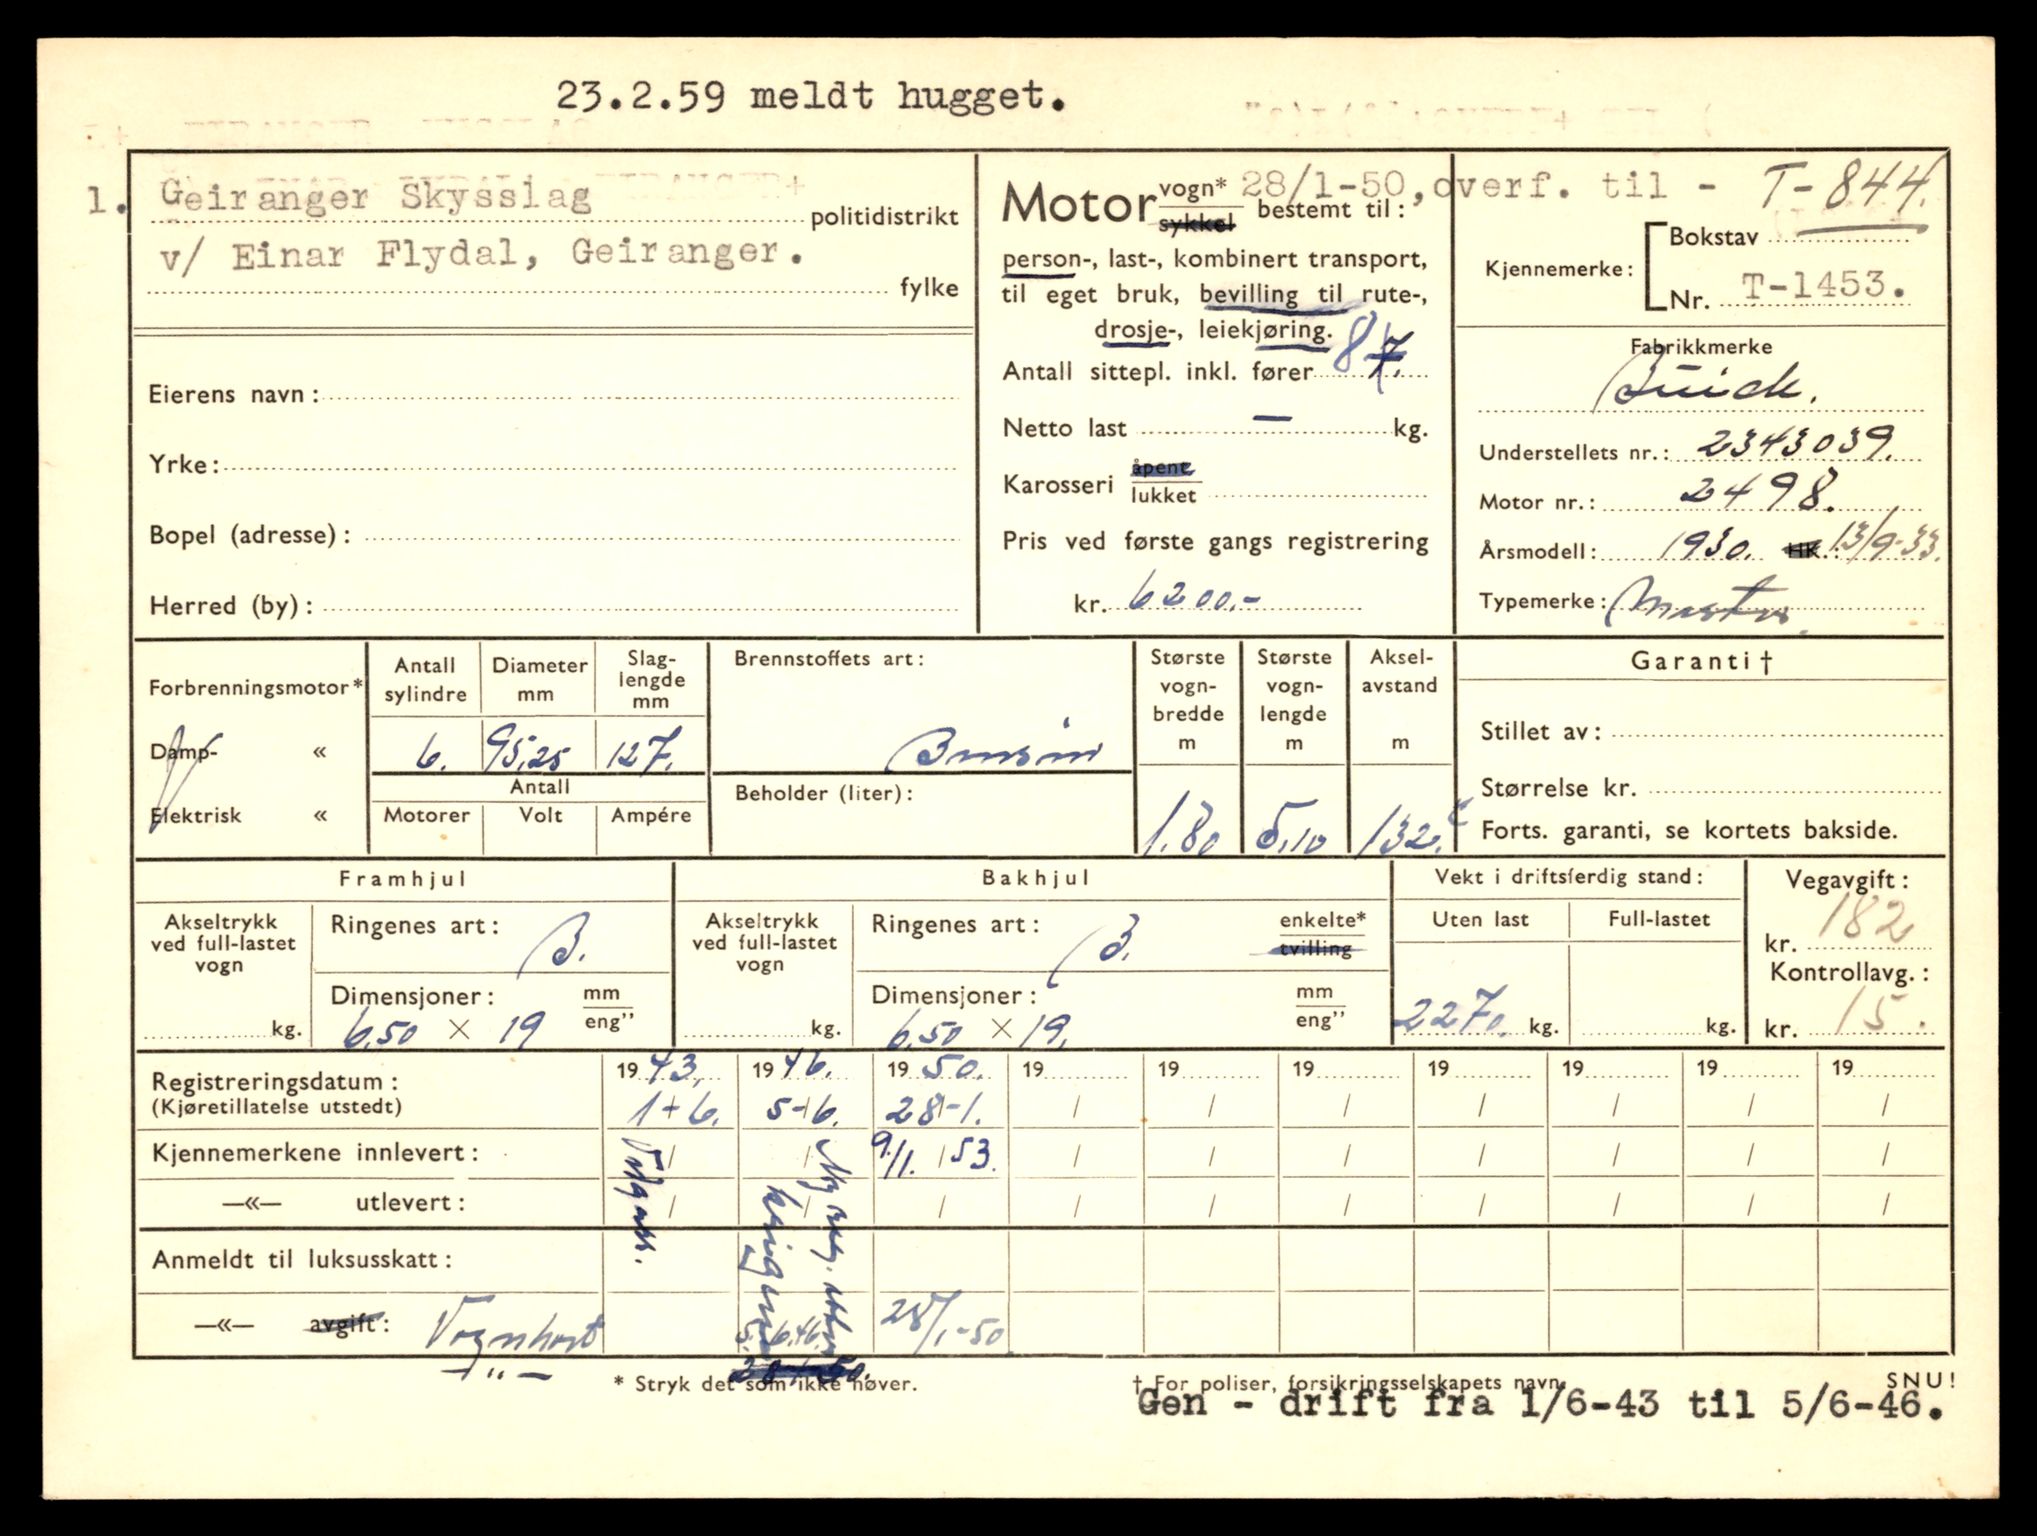 23.2.59 meldt hugget.
1. Geiranger Skysslag politidistrikt
v/ Einar Flydal, Geiranger.
fylke
Eierens navn:
Yrke:
Bopel (adresse):
Herred (by):
Motor vogn* sykkel bestemt til: 28/1-50, overf. til - T-844.
person-, last-, kombinert transport,
til eget bruk, bevilling til rute-,
drosje-, leiekjøring.
Antall sittepl. inkl. fører 8 7.
Netto last — kg.
Karosseri åpent lukket
Pris ved første gangs registrering
kr. 6200.-
Kjennemerke: Bokstav
Nr. T-1453.
Fabrikkmerke
Buick.
Understellets nr.: 2343039.
Motor nr.: 2498.
Årsmodell: 1930. HK.: 13/9-33.
Typemerke: Master.
Forbrenningsmotor*
Damp- «
Elektrisk «
Antall sylindre 6.
Diameter mm 95,25
Slaglengde mm 127.
Antall
Motorer Volt Ampére
Brennstoffets art:
Bensin
Beholder (liter):
Største vognbredde m 1.80
Største vognlengde m 5,10
Akselavstand m 132"
Garanti†
Stillet av:
Størrelse kr.
Forts. garanti, se kortets bakside.
Framhjul
Akseltrykk ved full-lastet vogn kg.
Ringenes art: B.
Dimensjoner: mm eng"
6.50 × 19
Bakhjul
Akseltrykk ved full-lastet vogn kg.
Ringenes art: B. enkelte* tvilling
Dimensjoner: mm eng"
6.50 × 19.
Vekt i driftsferdig stand:
Uten last Full-lastet
2270. kg. kg.
Vegavgift:
kr. 182
Kontrollavg.:
kr. 15.
Registreringsdatum: 1943. 1946. 1950. 19 19 19 19 19 19 19
(Kjøretillatelse utstedt) 1/6. 5-6. 28-1. / / / / / / /
Kjennemerkene innlevert: / / 9/1. 53. / / / / / / /
—«— utlevert: / / / / / / / / / /
Anmeldt til luksusskatt:
—«— avgift: Vognkort 5.6.46. 28/1-50
—"—
* Stryk det som ikke høver.
† For poliser, forsikringsselskapets navn.
SNU!
Gen - drift fra 1/6-43 til 5/6-46.